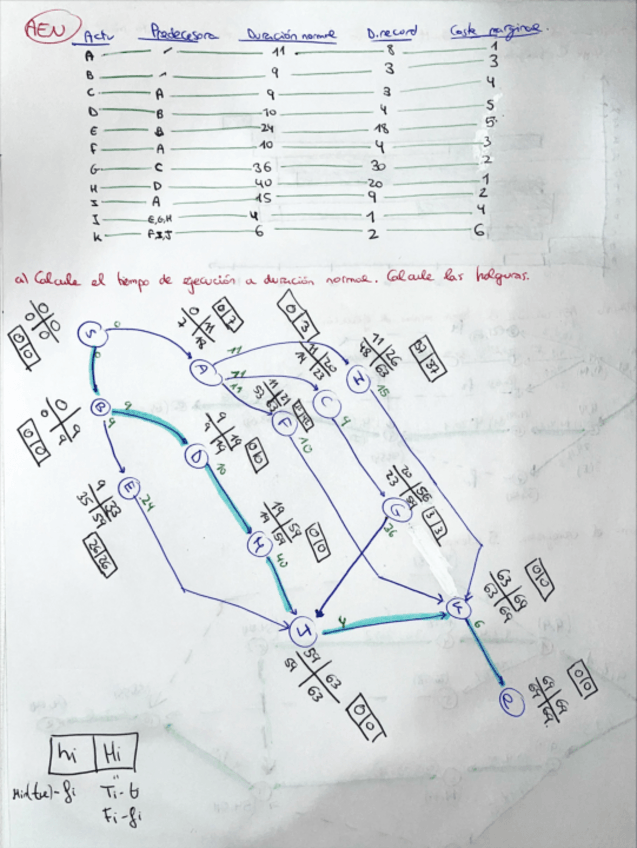 AEN
Activ Predecesora Duración normal D. record Coste marginal
A - 11 8 1
B - 9 3 3
C A 9 3 4
D B 10 4 5
E B 24 18 5
F A 10 4 3
G C 36 30 2
H D 40 20 1
I A 15 9 2
J E,G,H 4 1 4
K F,I,J 6 2 6
a) Calcule el tiempo de ejecución a duración normal. Calcule las holguras.
S 0 0 0 0 0 0
0
0
A 0 11 12 0
11
11
11
I 11 26 48 63 37 37
15
C 11 20 14 23 0 3
F 11 21 53 63
10
B 0 9 0 9 0 0
9
9
D 9 19 9 19 0 0
10
E 9 33 35 59 26 26
24
H 19 59 19 59 0 0
40
G 20 56 23 59 3 3
36
J 59 63 59 63 0 0
4
K 63 69 63 69 0 0
6
R 69 69 69 69 0 0
hi Hi
Ti-ti
Fi-fi